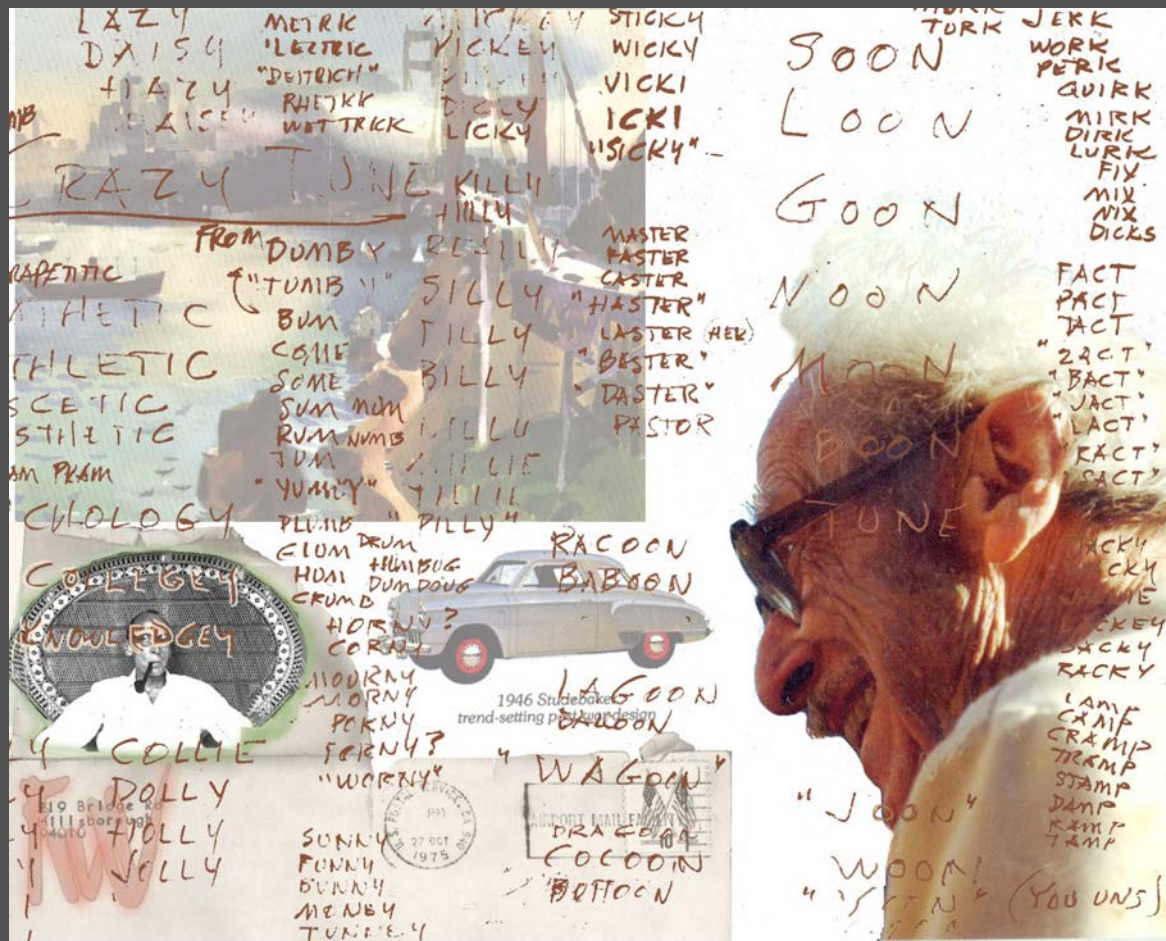 LAZY
DAISY
HAZY
CRAZY TUNE
FROM
RAPETITIC
THETIC
THLETIC
SCETIC
STHETIC
AM PRAM
CHOLOGY
COLLEGEY
KNOWLEDGEY
COLLIE
DOLLY
HOLLY
JOLLY
METRIK
"LECTRIC
"DEITRICH"
RHETRIK
WET TRICK
DUMBY
"TUMBY"
BUM
COME
SOME
SUM MUM
RUM NUMB
JUM
"YUMMY"
PLUMB
GLUM DRUM
HUM HUMBUG
CRUMB DUMDOUG
HORNY?
CORNY
MOURNY
MORNY
PORNY
FORNY?
"WORNY"
SUNNY
FUNNY
BUNNY
MONEY
TUNNEY
VICKEY
DICKY
LICKY
KILLY
HILLY
REALLY
SILLY
FILLY
BILLY
MILLIE
TILLIE
"PILLY"
STICKY
WICKY
VICKI
ICKI
"SICKY"
MASTER
FASTER
CASTER
"HASTER"
LASTER (HER)
"BASTER"
"DASTER"
PASTOR
RACOON
BABOON
LAGOON
BALOON
"WAGOON"
DRAGOON
COCOON
BUTTOON
1946 Studebaker
trend-setting post war design
219 Bridge Rd
Hillsborough
94010
U.S. POSTAL SERVICE, CA 940
27 OCT
1975
AIRPORT MAIL FACILITY
10
SOON
LOON
GOON
NOON
MOON
BOON
TUNE
"JOON"
WOON!
(YOU UNS)
TURK
JERK
WORK
PERK
QUIRK
MIRK
DIRK
LURK
FIX
MIX
NIX
DICKS
FACT
PACT
TACT
"ZACT"
"BACT"
"JACT"
"LACT"
"RACT"
"SACT"
TACKY
RACKY
LAMP
CAMP
CRAMP
TRAMP
STAMP
DAMP
RAMP
TAMP